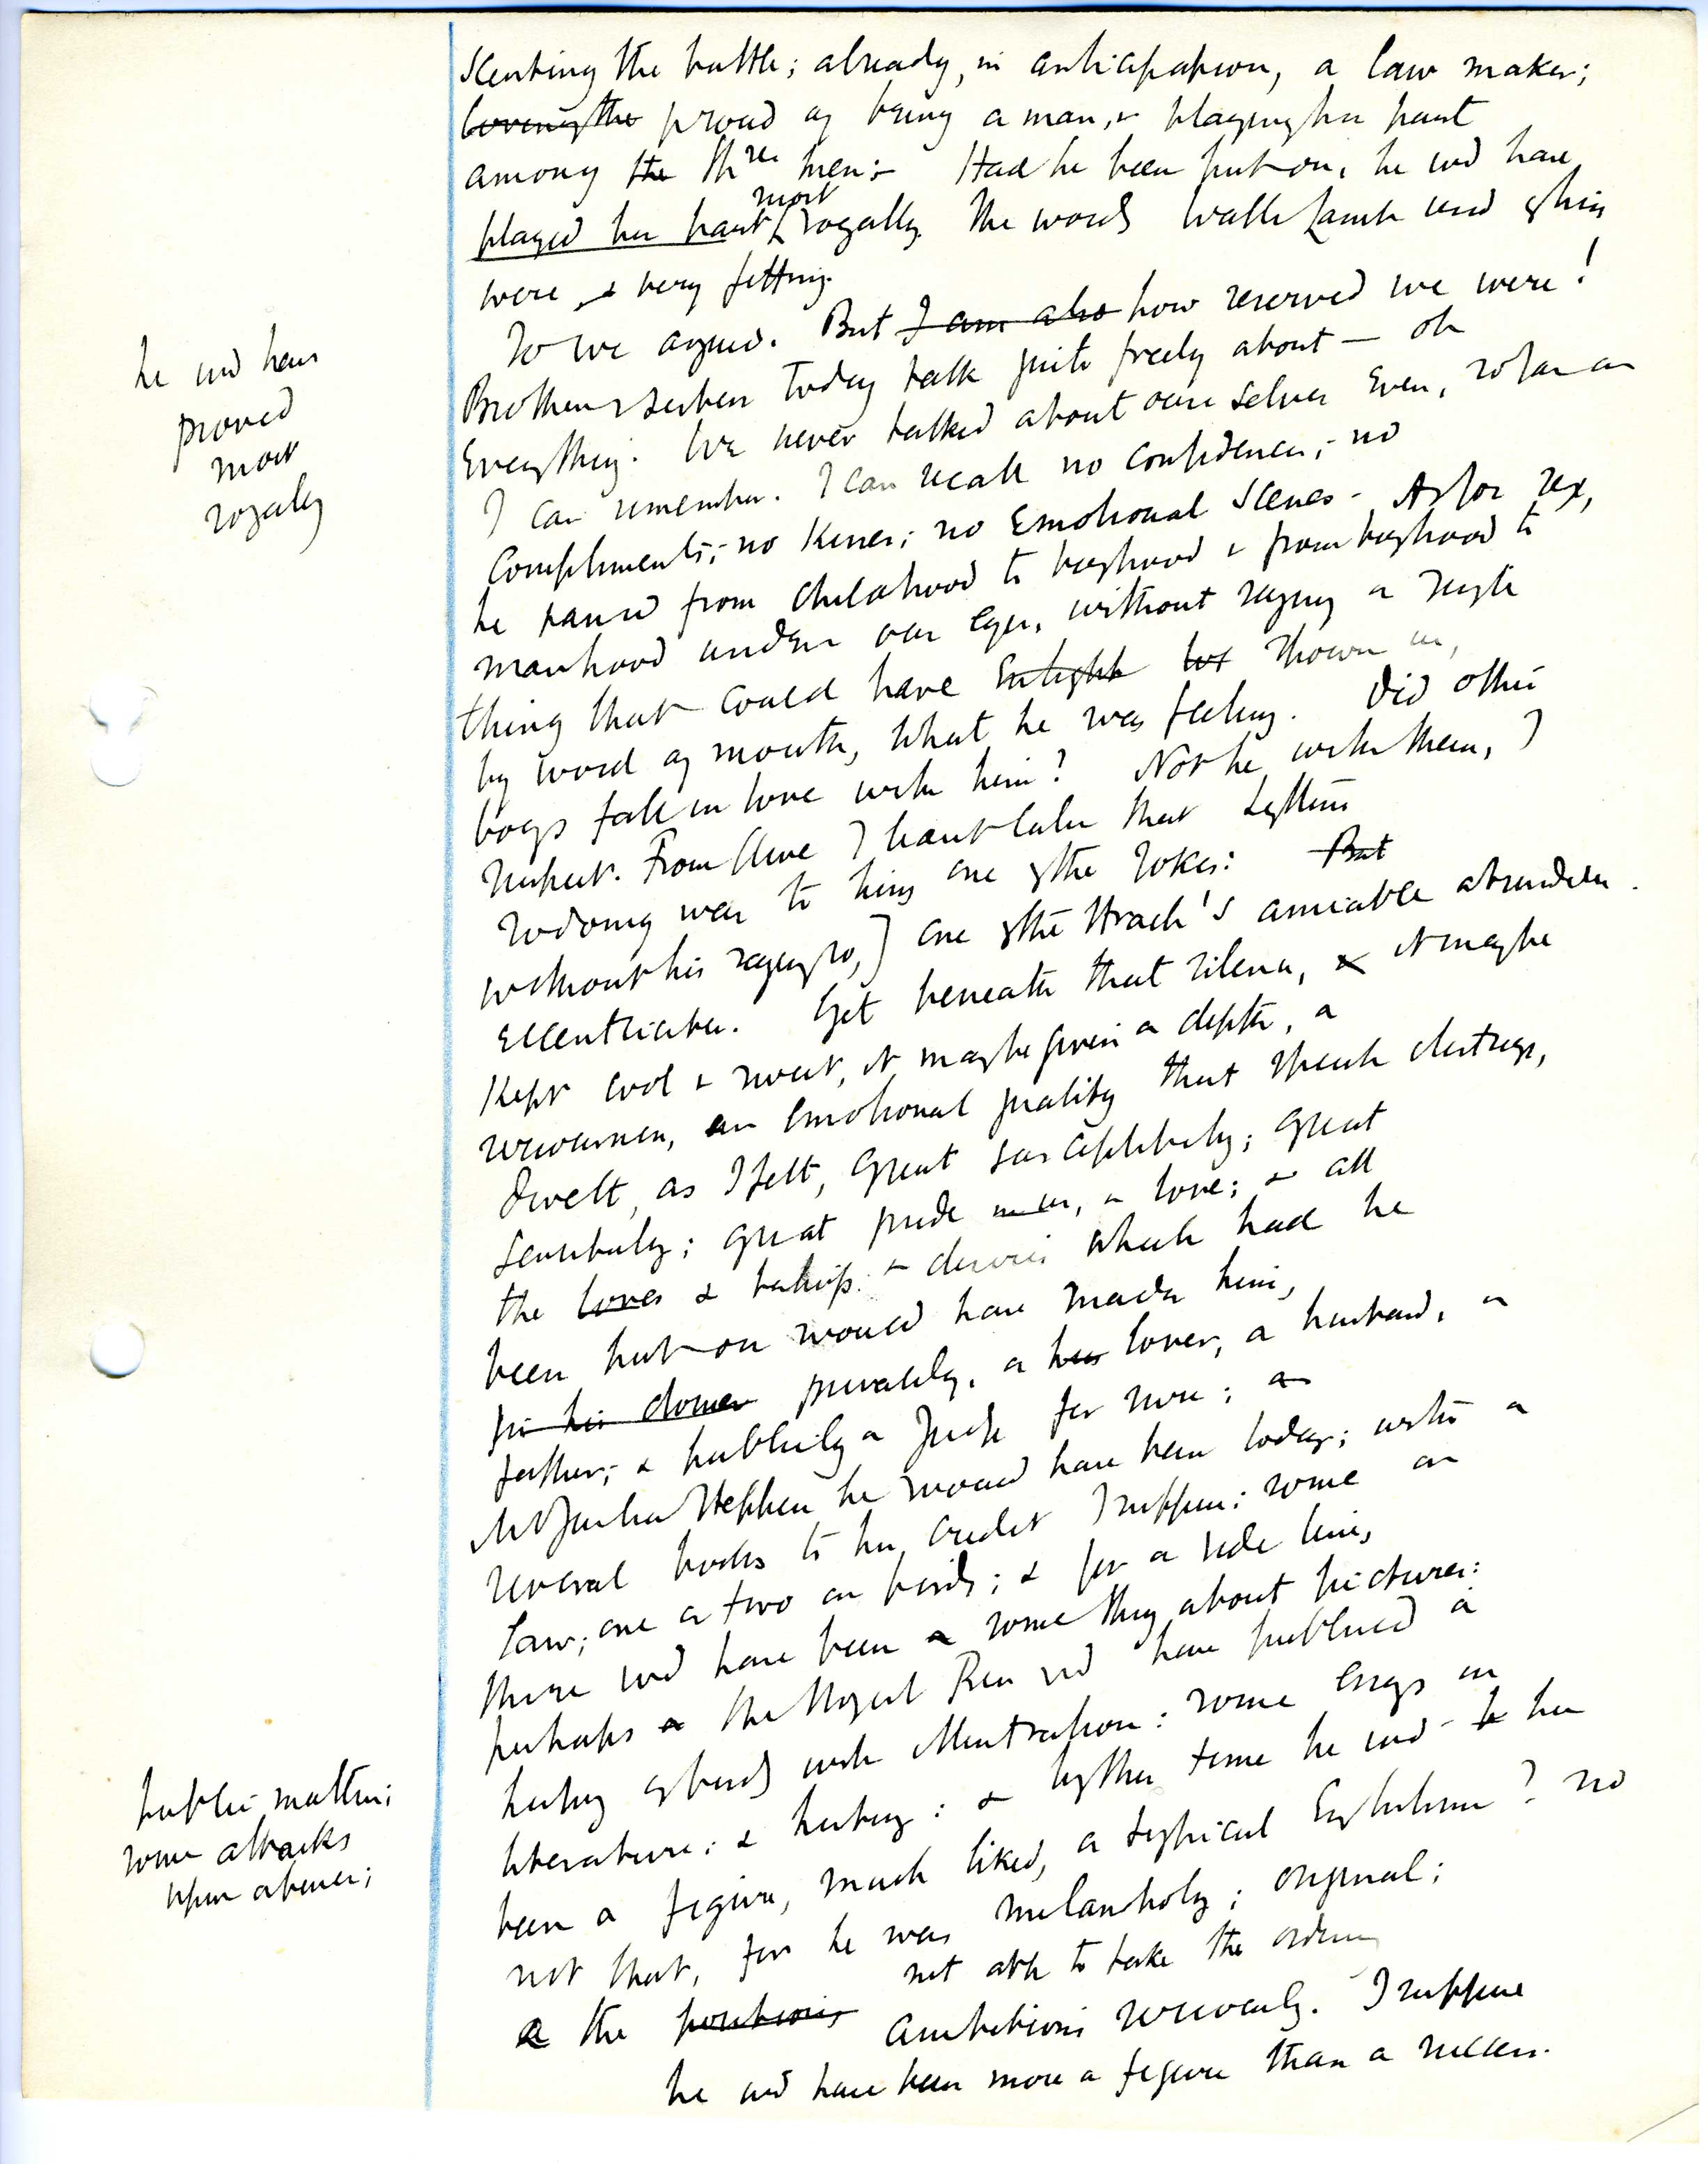 scenting the battle; already, in anticipation, a law maker;
loving the proud of being a man, & playing his part
among the the men: Had he been put on, he wd have
most
played his part royally. The words Walter Lamb used of him
were & very fitting.
So we argued. But I am also how reserved we were!
Brothers & sisters today talk quite freely about — oh
Everything. We never talked about ourselves even, so far as
I can remember. I can recall no confidences; no
compliments; no kisses; no Emotional scenes. As for sex,
he passed from childhood to boyhood & from boyhood to
manhood under our eyes, without saying a single
thing that could have shown us,
by word of mouth, what he was feeling. Did other
boys fall in love with him? Not he with them, I
suspect. From Clive I learnt later that Lytton
was to him one of the jokes: But
without his saying so, one of the Strach's amiable absurdities
eccentricities. Yet beneath that silence, & it may be
kept cool & sweet, it may be given a depth, a
seriousness, an emotional quality that speech destroys,
dwelt, as I felt, great susceptibility; great
sensibility; great pride in us, & love; & all
the loves & desires which had he
been put on would have made him,
privately, a lover, a husband, a
father; & publicly a Judge for sure; a
Mr Justice Stephen he would have been today; with a
several books to his credit I suppose: some on
law; one or two on birds; & for a side line,
there wd have been a something about pictures:
perhaps a the wd have published a
history of birds with illustrations: some essays on
literature: & history: & by this time he wd have
been a figure, much liked, a typical Englishman? no
not that, for he was melancholy; original;
not able to take the ordinary
a the positions ambitions seriously. I suppose
he wd have been more a figure than a success.
he wd have
proved
most
royally
public matters;
some attacks
upon abuses;